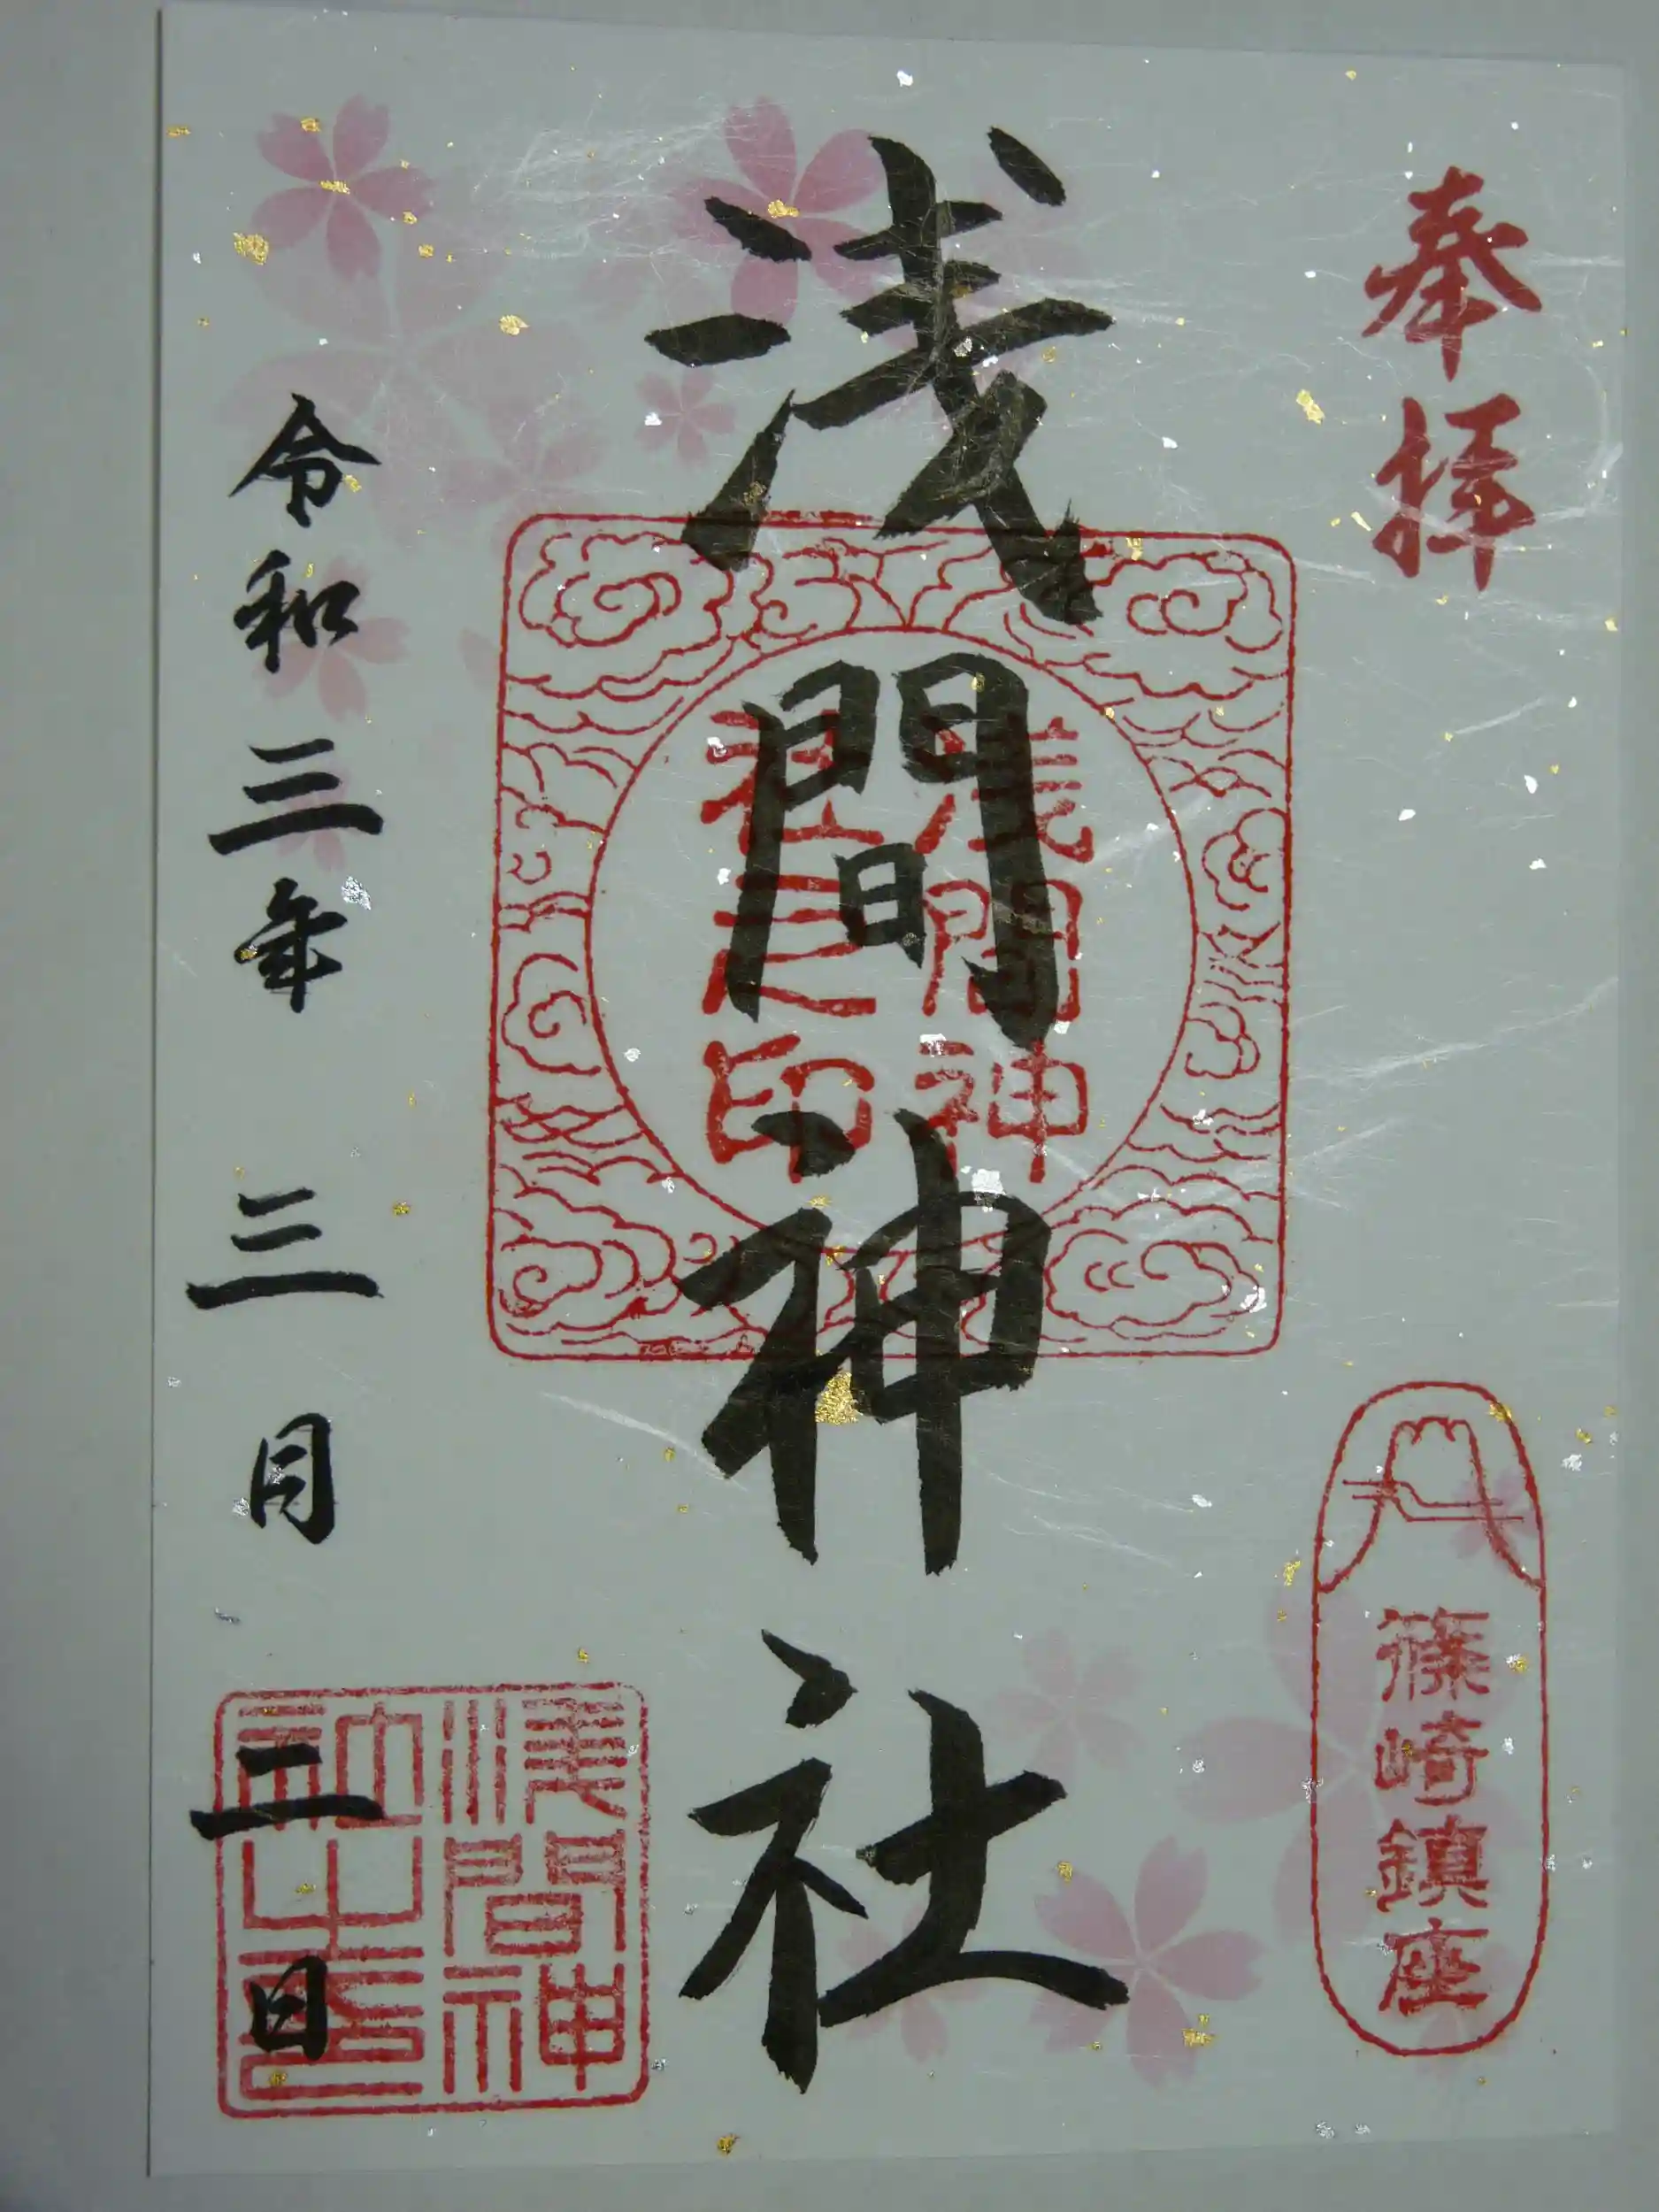 奉拝
篠崎鎮座
浅間神社
浅間神
社之印
令和三年 三月 二日
浅間神
社之印